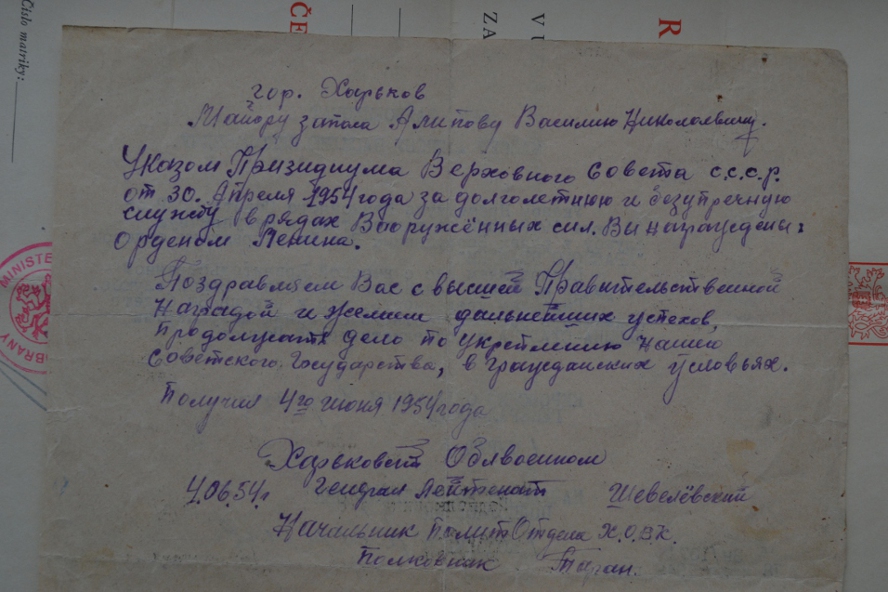 Číslo matriky:
Č
V
ZA
R
MINISTE
OBRANY
гор. Харьков
Майору запаса Алипову Василию Николаевичу.
Указом Призидиума Верховного Совета С.С.С.Р.
от 30. Апреля 1954 года за долголетнюю и безупречную
службу в рядах Вооружённых сил. Вы награждены:
Орденом Ленина.
Поздравляем Вас с высшей Правительственной
Наградой и желаем дальнейших успехов,
продолжать дело по укреплению нашего
Советского Государства, в гражданских условьях.
Получил 4го июня 1954 года
Харьковский Облвоенком
4.06.54г Генерал Лейтенант Шевелёвский
Начальник ПолитОтдела Х.О.В.К.
Полковник Таран.